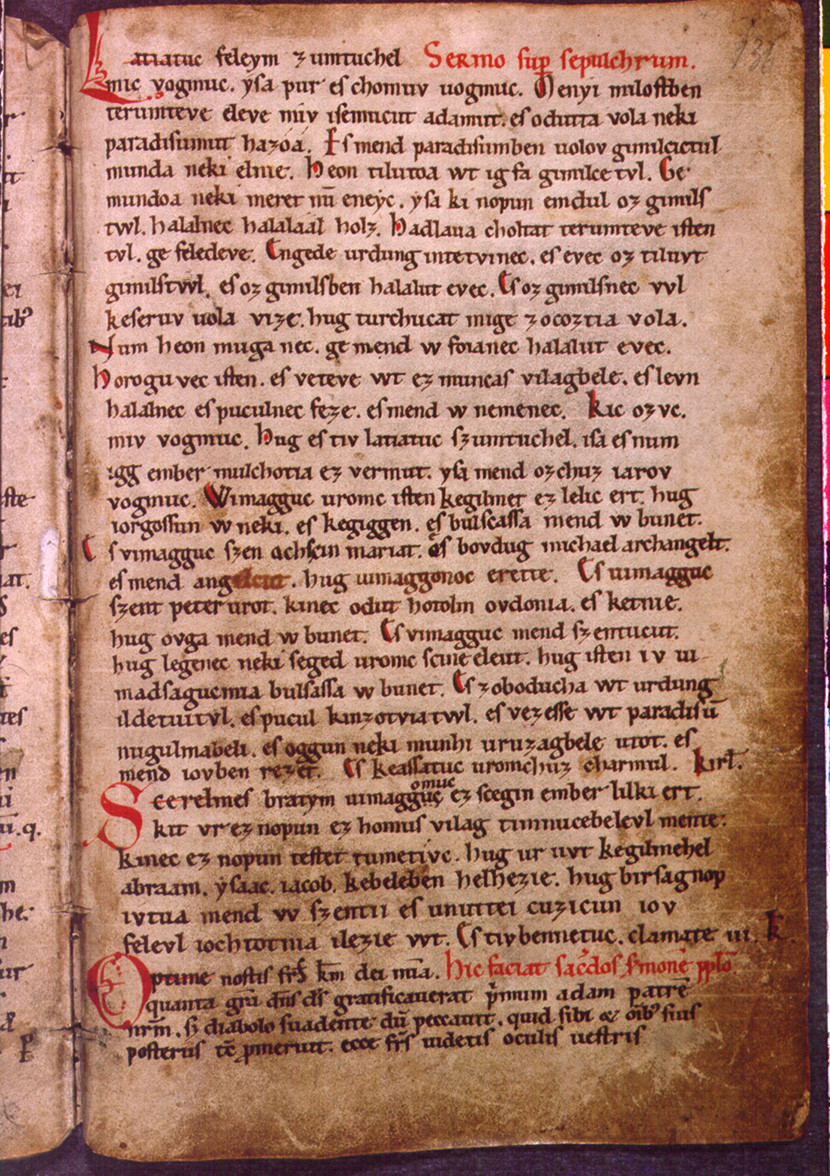 Latiatuc feleym zumtuchel Sermo sup sepulchrum.
mic vogmuc. yſa pur eſ chomuv uogmuc. Menyi miloſtben
terumteve eleve miv iſemucut adamut. eſ odutta vola neki
paradiſumut hazoá. Eſ mend paradiſumben uolov gimilcictul
munda neki elnie. Heon tilutoa wt ig fa gimilce tvl. Ge
mundoa neki meret nū eneyc. yſa ki nopun emdul oz gimilſ
twl. halalnec halalaal holz. Hadlaua choltat terumteve iſten
tvl. ge feledeve. Engede urdung intetvinec. eſ evec oz tiluvt
gimilſtvvl. eſ oz gimilſben halalut evec. Eſ oz gimilſnec vvl
keſeruv uola vize. hug turchucat mige zocoztia vola.
Num heon muga nec. ge mend w foianec halalut evec.
Horogu vec iſten. eſ veteve wt ez muncaſ vilagbele. eſ levn
halalnec eſ puculnec feze. eſ mend w nemenec. Kic ozvc.
miv vogmuc. Hug eſ tiv latiatuc ſzumtuchel. iſa eſ num
igg ember mulchotia ez vermut. yſa mend ozchuz iarov
vogmuc. Wimagguc uromc iſten kegilmet ez lelic ert. hug
iorgoſſun w neki. eſ kegiggen. eſ bulſcaſſa mend w bunet.
Eſ vimagguc ſzen achſcin mariat. eſ bovdug michael archangelt.
eſ mend angelcut. hug uimaggonoc erette. Eſ uimagguc
ſzent peter urot. kinec odut hotolm ovdonia. eſ ketnie.
hug ovga mend w bunet. Eſ vimagguc mend ſzentucut.
hug legenec neki ſeged uromc ſcine eleut. hug iſten iv ui
madſagucmia bulſaſſa w bunet. Eſ zoboducha wt urdung
ildetuitvl. eſ pucul kinzotviatwl. eſ vezeſſe wt paradiſū
nugulmabeli. eſ oggun neki munhi uruzagbele utot. eſ
mend iovben rezet. Eſ keaſſatuc uromchuz charmul. Kirl.
Scerelmeſ bratym uimagguc omuc ez ſcegin ember lilki ert.
kit vr ez nopun ez homuſ vilag timnucebelevl mente.
kinec ez nopun teſtet tumetivc. hug ur uvt kegilmehel
abraam. yſaac. iacob. kebeleben helhezie. hug birſagnop
ivtua mend w ſzentii eſ unuttei cuzicun iov
felevl iochtotnia ilezie wt. Eſ tivbennetuc. clamate iii. k.
Optime noſtiſ frſ km dei nīa. Hic faciat sac̄dos ſ'monē pplo
quanta grā dn̄s dſ gratificauerat p̄mum adam patrē
nrm̄. ſꝫ diabolo ſuadente dū peccauit. quid ſibi & oīb' ſuiſ
poſteriſ tē p̄meruit. ecce frſ uidetiſ oculiſ ueſtriſ